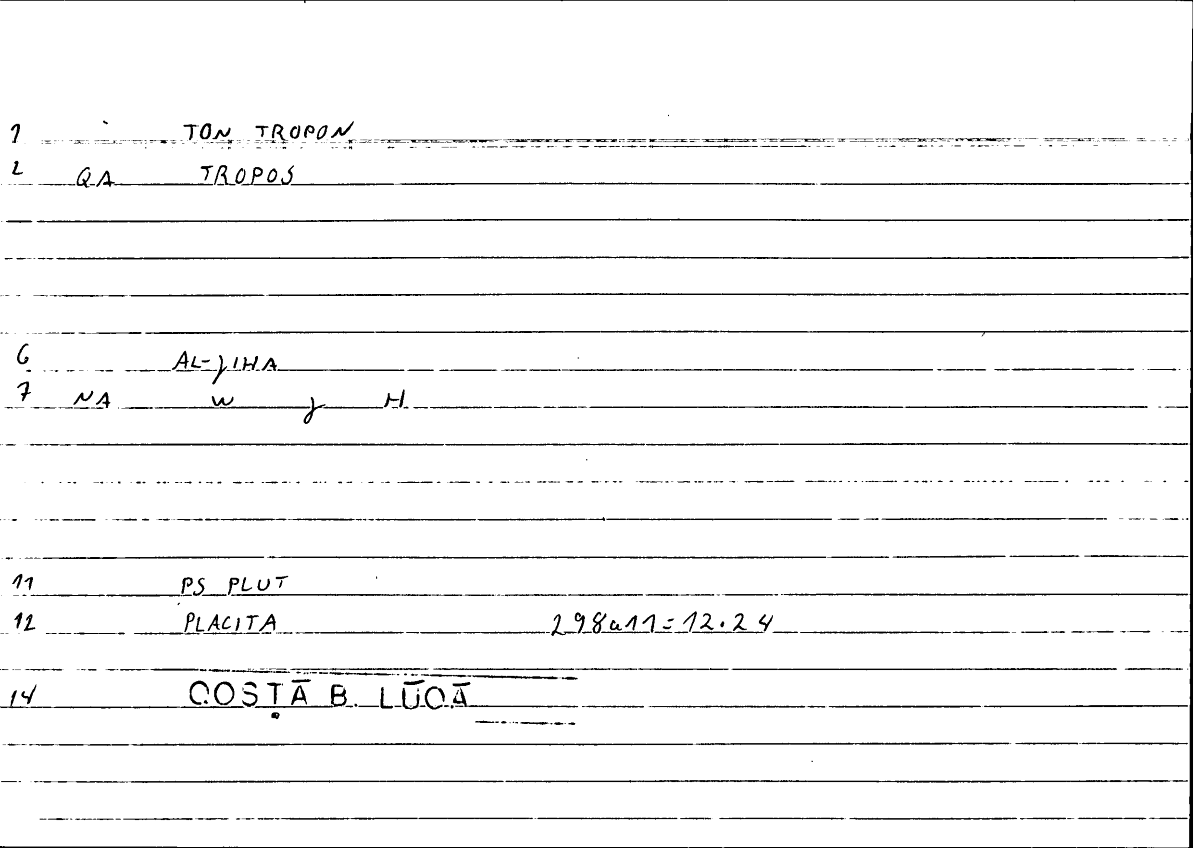 1 TON TROPON
2 QA TROPOS
6 AL-ʒIHA
7 NA w ʒ H
11 PS PLUT
12 PLACITA 298a11=12.24
14 QOSṬĀ B. LŪQĀ